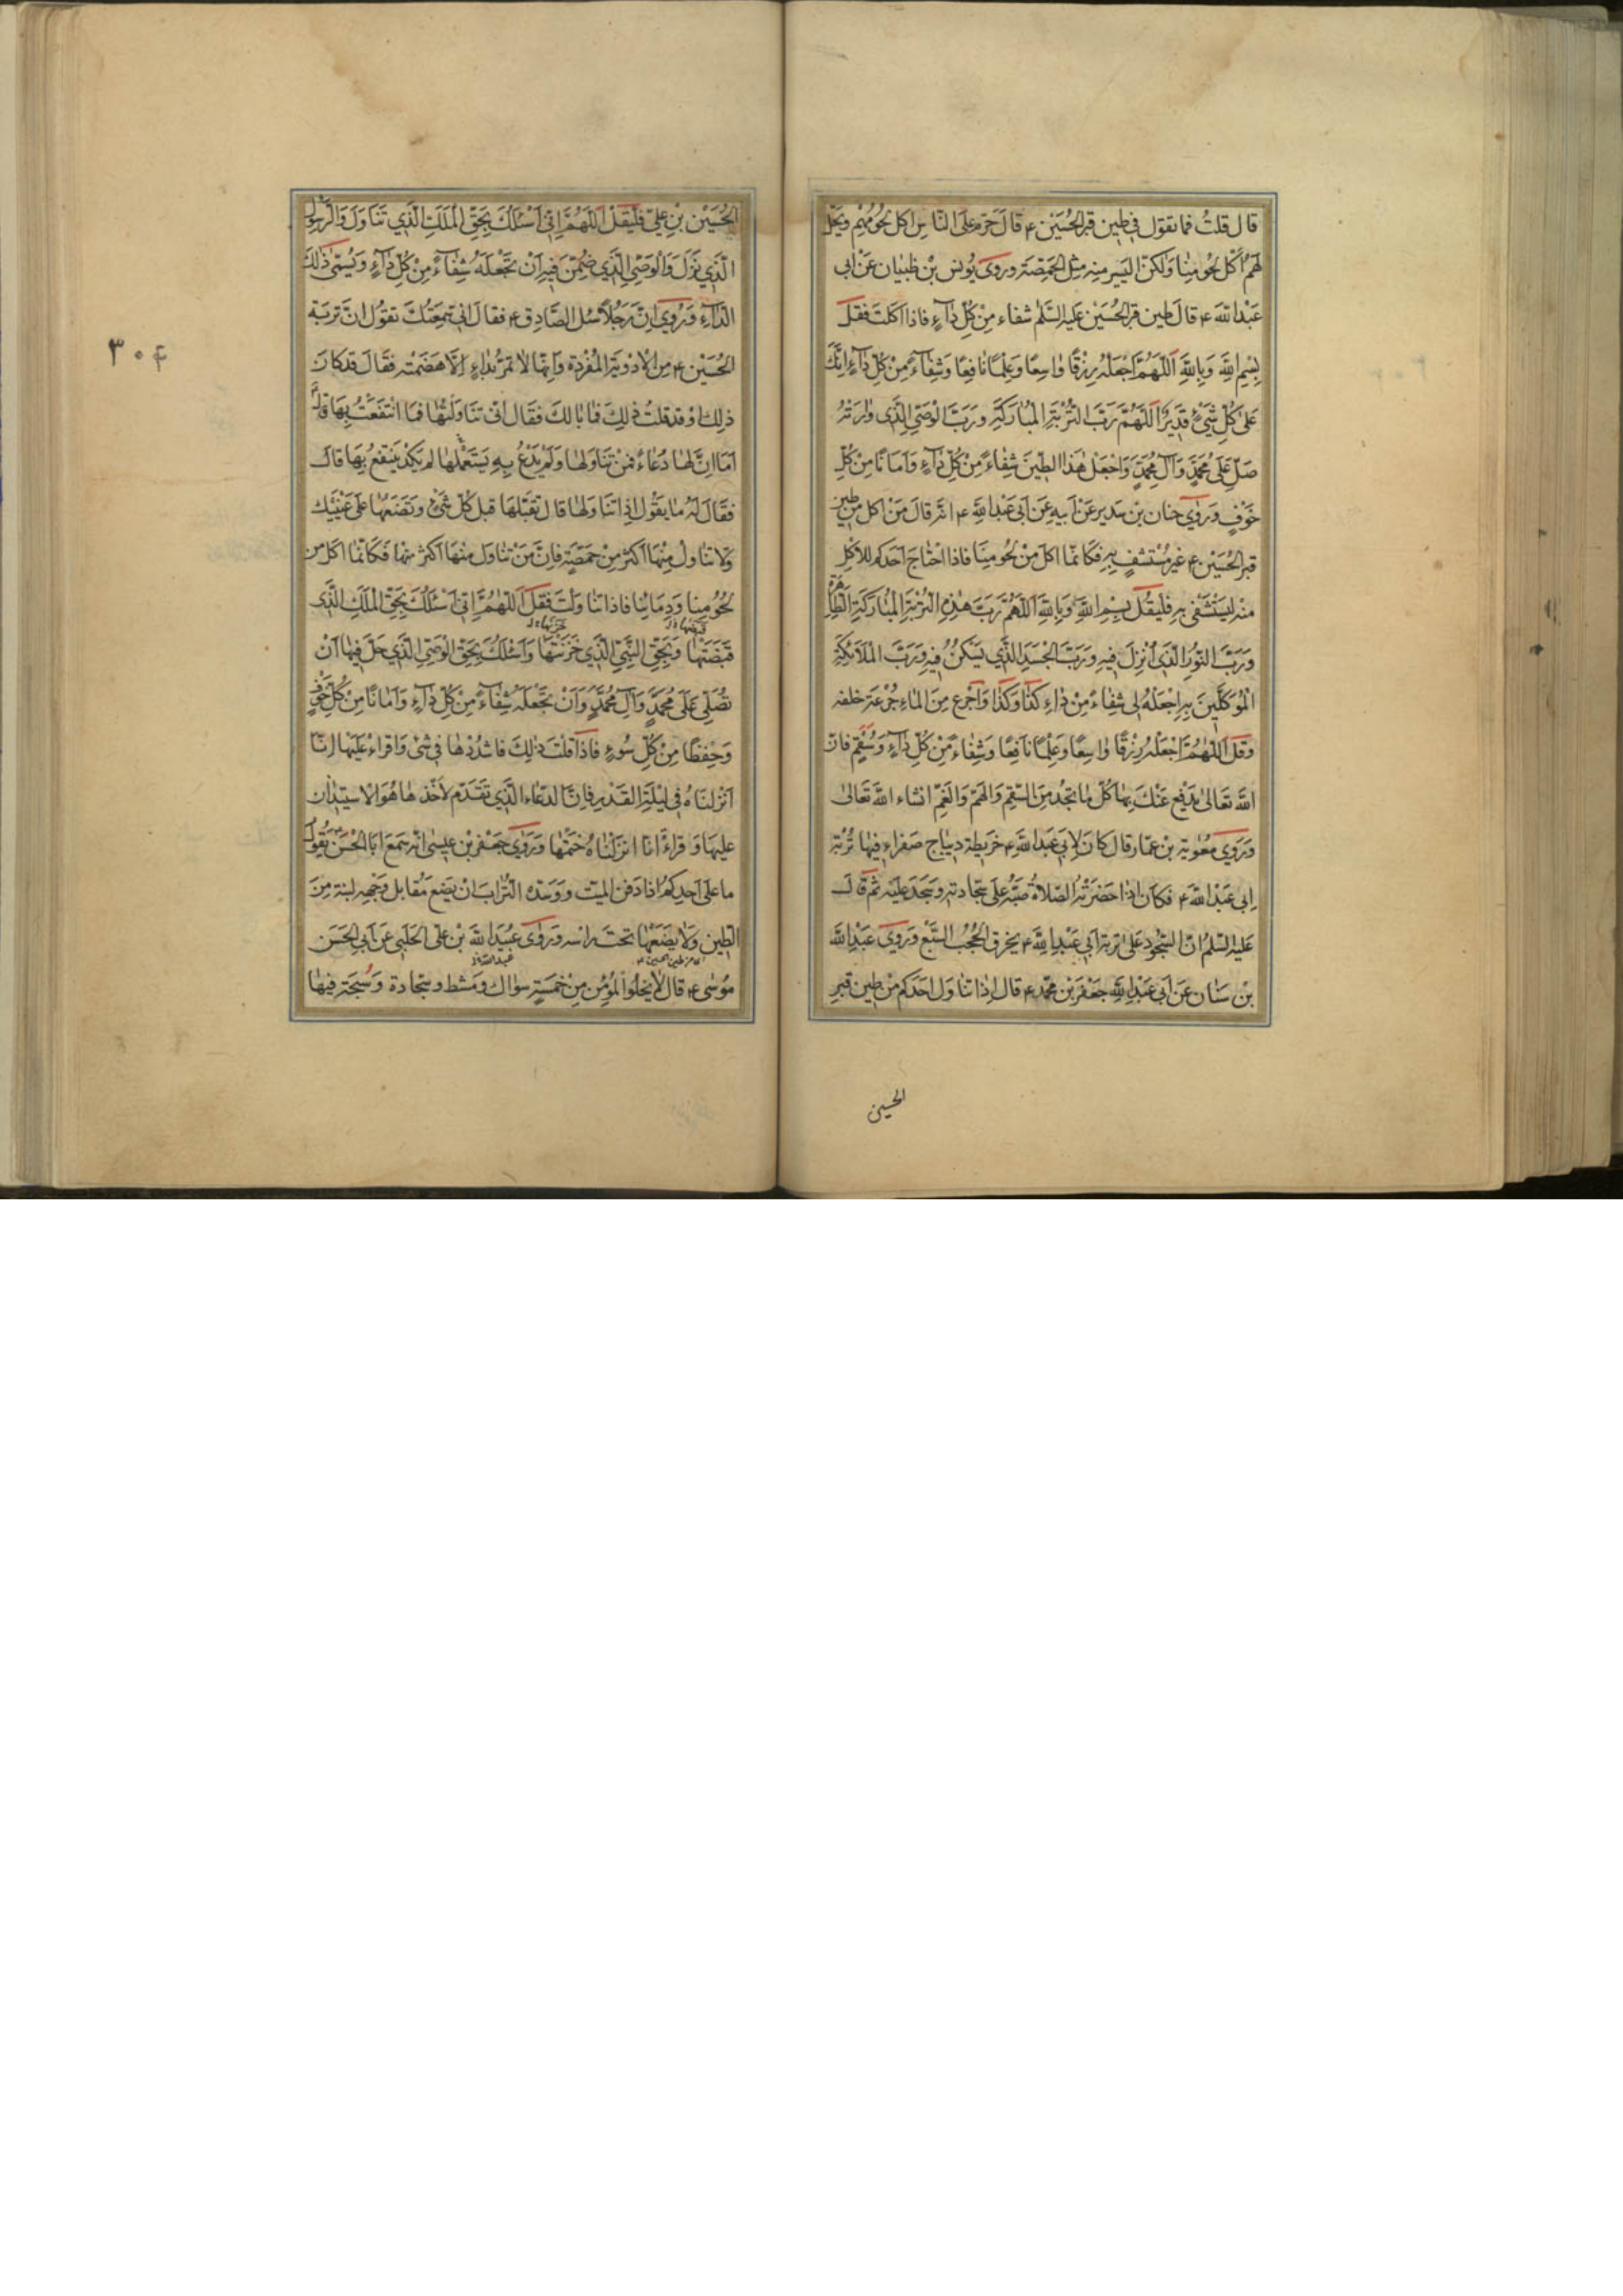 قال قلتُ فما تقول في طين قبر الحُسَيْن ع قالَ حَرّم على الناسِ اكل لحومُهِم ويحلّ
لهم اَكل لحومِنا ولكنّ اليَسير منه مثل الحِمّصَة ورَوى يُونس بنْ ظبيان عَنْ ابى
عَبْد الله ع قالَ طين قبر الحُسَيْن عليه السّلم شفاء مِنْ كُلّ دٰآءٍ فاذا اكلتَ فقل
بِسْمِ اللهِ وَبِاللهِ اَللّهُمَّ اجْعَلْهُ رِزْقًا وٰاسِعًا وَعِلْمًا نٰافِعًا وَشِفٰآءً مِنْ كُلِّ دٰآءٍ اِنَّكَ
عَلىٰ كُلِّ شَيْءٍ قَدِيْرٌ اَللّهُمَّ رَبَّ التُّرْبَةِ المُبٰارَكَةِ وَرَبَّ الْوَصِيِّ الَّذى وٰارَتْهُ
صَلِّ عَلىٰ مُحَمَّدٍ وَآلِ مُحَمَّدٍ وَاجْعَلْ هٰذَا الطِّينَ شِفٰاءً مِنْ كُلِّ دٰآءٍ وَاَمٰانًا مِنْ كُلِّ
خَوْفٍ وَرَوٰى حنان بن سَدير عَنْ اَبيهِ عَنْ اَبى عَبْد اللهِ ع انّه قالَ مَنْ اكل من طين
قبر الحُسَيْن ع غير مُسْتشفٍ به فكانمّا اكلَ مِنْ لحُومِنَا فاذا احْتاجَ احَدكم للاكل
منْه ليَسْتَشْفى به فليقُل بِسْمِ اللهِ وَبِاللهِ اَللّهُمَّ رَبَّ هٰذِهِ التُّرْبَةِ المُبٰارَكَةِ الطّٰاهِرَةِ
وَرَبَّ النّورِ الَّذى اُنْزِلَ فيهِ وَرَبَّ الْجَسَدِ الَّذي سَكَنَ فيهِ وَرَبَّ المَلاٰئِكَةِ
الْمُوَكَّلِينَ بِهِ اِجْعَلْهُ لى شِفٰاءً مِنْ دٰاءِ كَذٰا وَكَذٰا وَاجْرع مِنَ المٰاءِ جُرْعَة خلفه
وَقل اَللّهُمَّ اجْعَلْهُ رِزْقًا وٰاسِعًا وَعِلْمًا نٰافِعًا وَشِفٰاءً مِنْ كُلِّ دٰآءٍ وَسُقْمٍ فانّ
اللهَ تعَالىٰ يدْفع عَنْكَ بهٰا كُلّ مٰا تجْد مِنَ السّقِم وَالهَمّ وَالغَمِّ انشاء اللهُ تَعَالىٰ
وَرَوٰى مُعٰوية بن عمّار قال كانَ لاَبى عَبدِ اللهِ ع خريطة ديباج صَفراء فيهٰا تُرْبَة
اَبى عَبْد اللهِ ع فكانَ اذا حَضَرَتْه الصّلاةُ صَبّهُ عَلىٰ سَجّادته وَسَجَدَ عليه ثمّ قالَ
عَليْه السّلمُ انّ السّجُود علىٰ تربة اَبي عَبْدِ اللهِ ع يخرق الحُجُبَ السَّبْع وَرَوى عَبْدُ اللهِ
بْن سنٰان عَنْ اَبى عَبْدِ اللهِ جَعْفَر بْن محمّد ع قال اِذا تناوَل احَدكم مِنْ طِين قبر
الحسين
الحُسَيْن بْنِ عليّ فَليَقُلْ اَللّهُمَّ اِنّى اَسْئَلُكَ بِحَقِّ الْمَلَكِ الَّذي تَنٰاوَلَ وَالرَّسُولِ
الَّذي نَزَلَ وَالْوَصِيِّ الَّذي ضُمِّنَ فيهِ اَنْ تَجْعَلَهُ شِفٰآءً مِنْ كُلِّ دٰآءٍ وَيُسَمّى ذٰلكَ
الدّآء وَرُويَ انَّ رَجُلاً سُئل الصّادِق ع فقالَ انى سَمِعْتُكَ تقُولُ انَّ تربَة
الحُسَيْن ع مِن الاَدْوية المُفْرَدَة وَانّها لا تمَرّ بدٰاءٍ اِلاّ هَضَمَتْه فقٰالَ قدكانَ
ذلك اوْ قد قلتُ ذٰلِكَ فمٰا بٰالكَ فقٰال انّى تناوَلتُهٰا فمَا انتَفَعْتُ بِهٰا قال
امَا انَّ لهٰا دُعٰاءً فمَنْ تنَاوَلهٰا وَلَمْ يَدْعُ بِهِ يَسْتَعْملهٰا لم يكَدْ يَنتفعُ بِهَا قالَ
فقٰالَ لهُ مٰا يقُولُ اذا تنَاوَلهٰا قالَ تقبّلهٰا قبل كلّ شَيْءٍ وَتضعَهٰا عَلىٰ عَيْنَيْكَ
وَلا تنٰاوَلْ مِنْهَا اكثرَ مِنْ حِمّصَةٍ فاِنَّ مَنْ تنٰاوَلَ منْهَا اكثَر منهٰا فكَانّمٰا اكلَ من
لحُوُمِنا وَدِمَائنا فاذا تناوَلتَ فَقلْ اَللّهُمَّ اِنّى اَسْئَلُكَ بِحَقِّ المَلَكِ الَّذى
قَبَضَهٰا خَزَنَهٰا
قَبَضَتْهٰا وَبِحَقِّ النَّبِيِّ الَّذي خَزَنَتْهَا وَاَسْئَلُكَ بِحَقِّ الْوَصِيِّ الَّذي حَلَّ فيهٰا اَنْ
تُصَلِّيَ عَلىٰ مُحَمَّدٍ وَآلِ مُحَمَّدٍ وَاَنْ تَجْعَلَهُ شِفٰآءً مِنْ كُلِّ دٰآءٍ وَاَمٰانًا مِنْ كُلِّ خَوْفٍ
وَحِفظًا مِنْ كُلِّ سُوءٍ فاذا قلْتَ ذٰلكَ فاشدُدْهٰا في شئ وَاقراءْ عَليْهٰا اِنّا
اَنْزلنَاهُ في لَيْلَةِ القَدْرِ فانَّ الدّعٰاء الَّذي تقدّم لاَخْذهٰا هُوَ الاستيذٰان
عليهَا وَقراءةَ انّا انزَلْنٰاهُ خَتمُهٰا وَرَوٰى جَعْفر بْن عيسٰى انّه سَمَعَ ابَا الْحَسَن يَقُولُ
ما علىٰ احَدِكُمْ اذا دَفن الميّت وَوَسّدَه التُّرٰابَ انْ يَضَع مُقابل وَجْهِهِ لبنة مِنَ
الطين وَلا يَضعُهٰا تحتَ راسه وَرَوٰى عُبَيد الله بْن عَلى الحَلبى عَنْ اَبِي الحَسَن
من طين الحسين ع عبد الله
مُوسٰى ع قال لاٰ يخلُو المُؤمِن مِنْ خَمسَةٍ سوٰاك وَمشط وَسَجّادة وَسُبحَة فيهٰا
٣٠٤